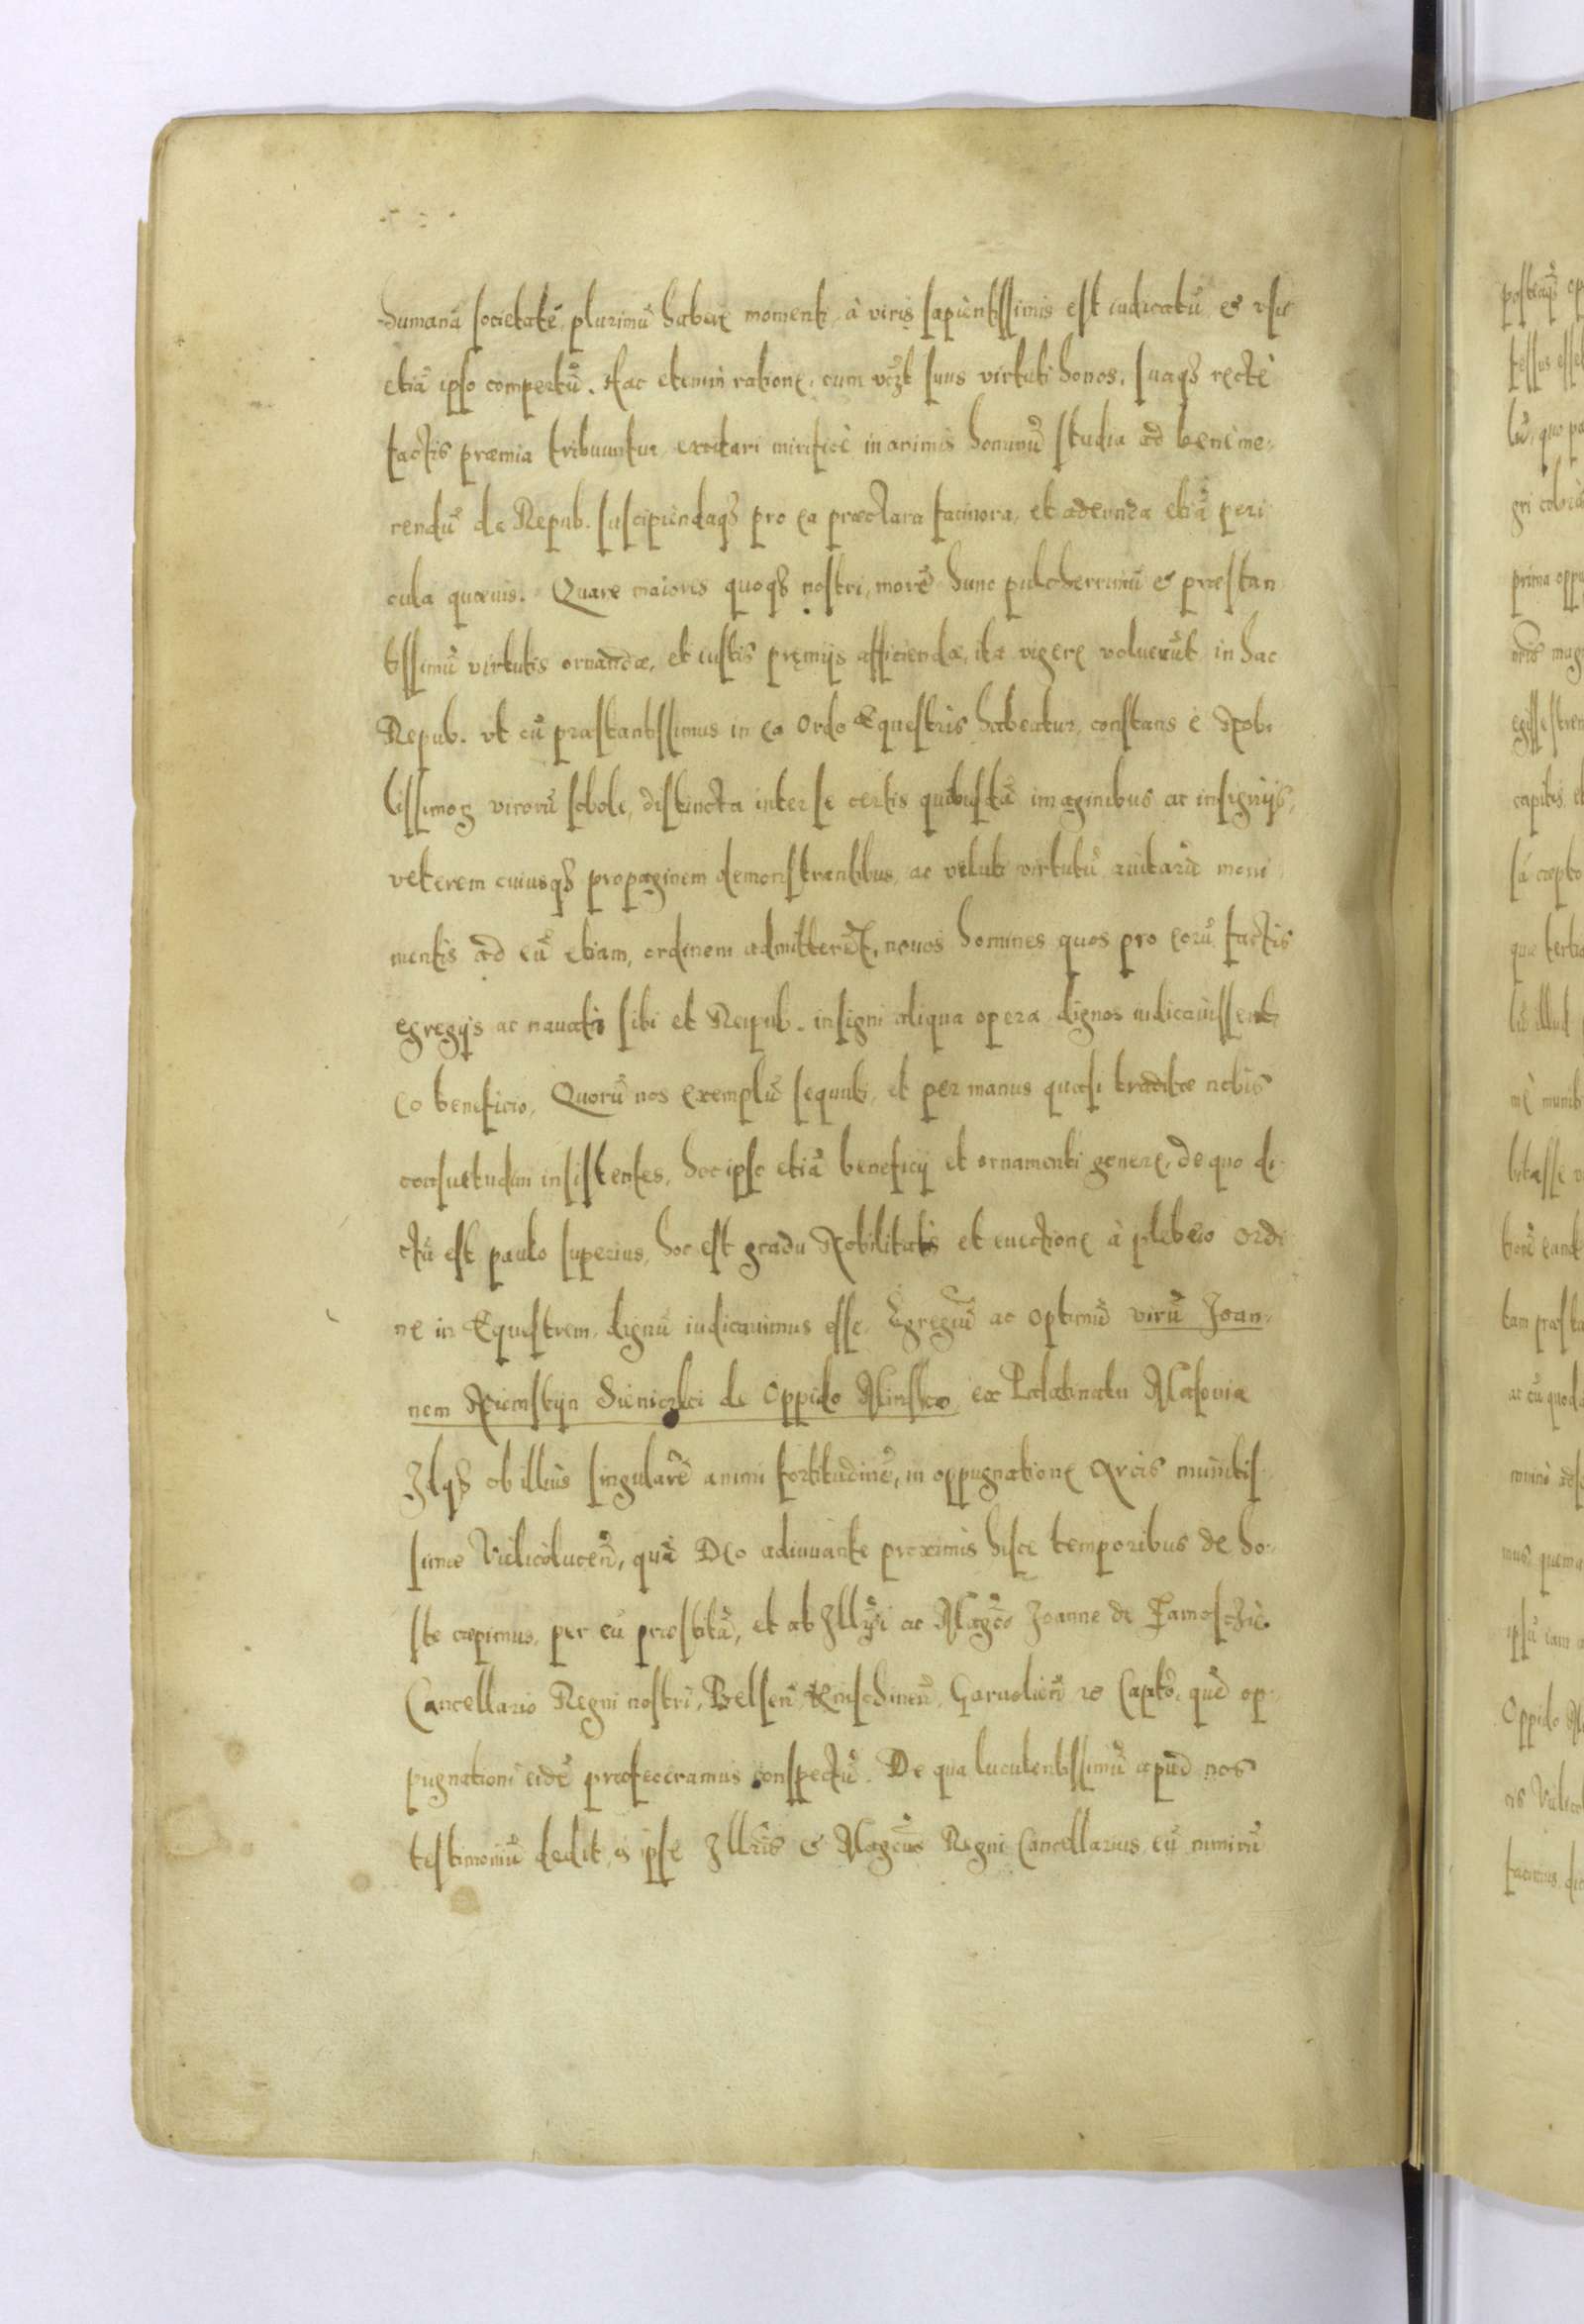 humanā societatē, plurimū habere momenti, à viris sapientissimis est iudicatū, & vsu
etiā ipso compertū. Hac etenim ratione, cum suus virtuti honos, suaq3 rectè
factis præmia tribuuntur, excitari mirificè in animis hominū studia ad benè me-
rendū de Repub. suscipiendaq3 pro ea præclara facinora, et adeunda etiā peri
cula quævis. Quare maiores quoq3 nostri, morē hunc pulcherrimū & præstan
tissimū virtutis ornandæ, et iustis pręmijs afficiendæ, ita vigere voluerūt in hac
Repub. vt cū præstantissimus in ea Ordo Equestris habeatur, constans è Nobi
lissimoꝝ virorū sobole, distincta inter se certis quibusdā imaginibus ac insignijs,
veterem cuiusq3 propaginem demonstrantibus, ac veluti virtutū auitarū moni
mentis ad eū etiam, ordinem admitterēt, nouos homines quos pro eorū factis
egregijs ac nauata sibi et Reipub. insigni aliqua opera dignos iudicauissent
eo beneficio, Quorū nos exemplū sequuti, et per manus quasi traditæ nobis
consuetudini insistentes, hoc ipso etiā beneficij et ornamenti genere, de quo di
ctū est paulo superius, hoc est gradu Nobilitatis et euectione à plebeio Ordi
ne in Equestrem, dignū iudicauimus esse, Egregiū ac Optimū virū Joan-
nem de Oppido Minsko ex Palatinatu Masouiæ
Idq3 ob illius singularē animi fortitudinē, in oppugnatione Arcis munitis
simæ Vielicolucen̄, quā Deo adiuuante proximis hisce temporibus de ho-
ste cœpimus, per eū præstitā, et ab Illr̄i ac Mag̅co Joanne de Zamoschie
Cancellario Regni nostri, Belsen̄ Knischinen̄, Garuolien̄ Capitō, quē op-
pugnationi eidē præfeceramus conspectū. De qua luculentissimū apud nos
testimoniū dedit, is ipse Illr̄is & Mag̅cus Regni Cancellarius, eū nimirū